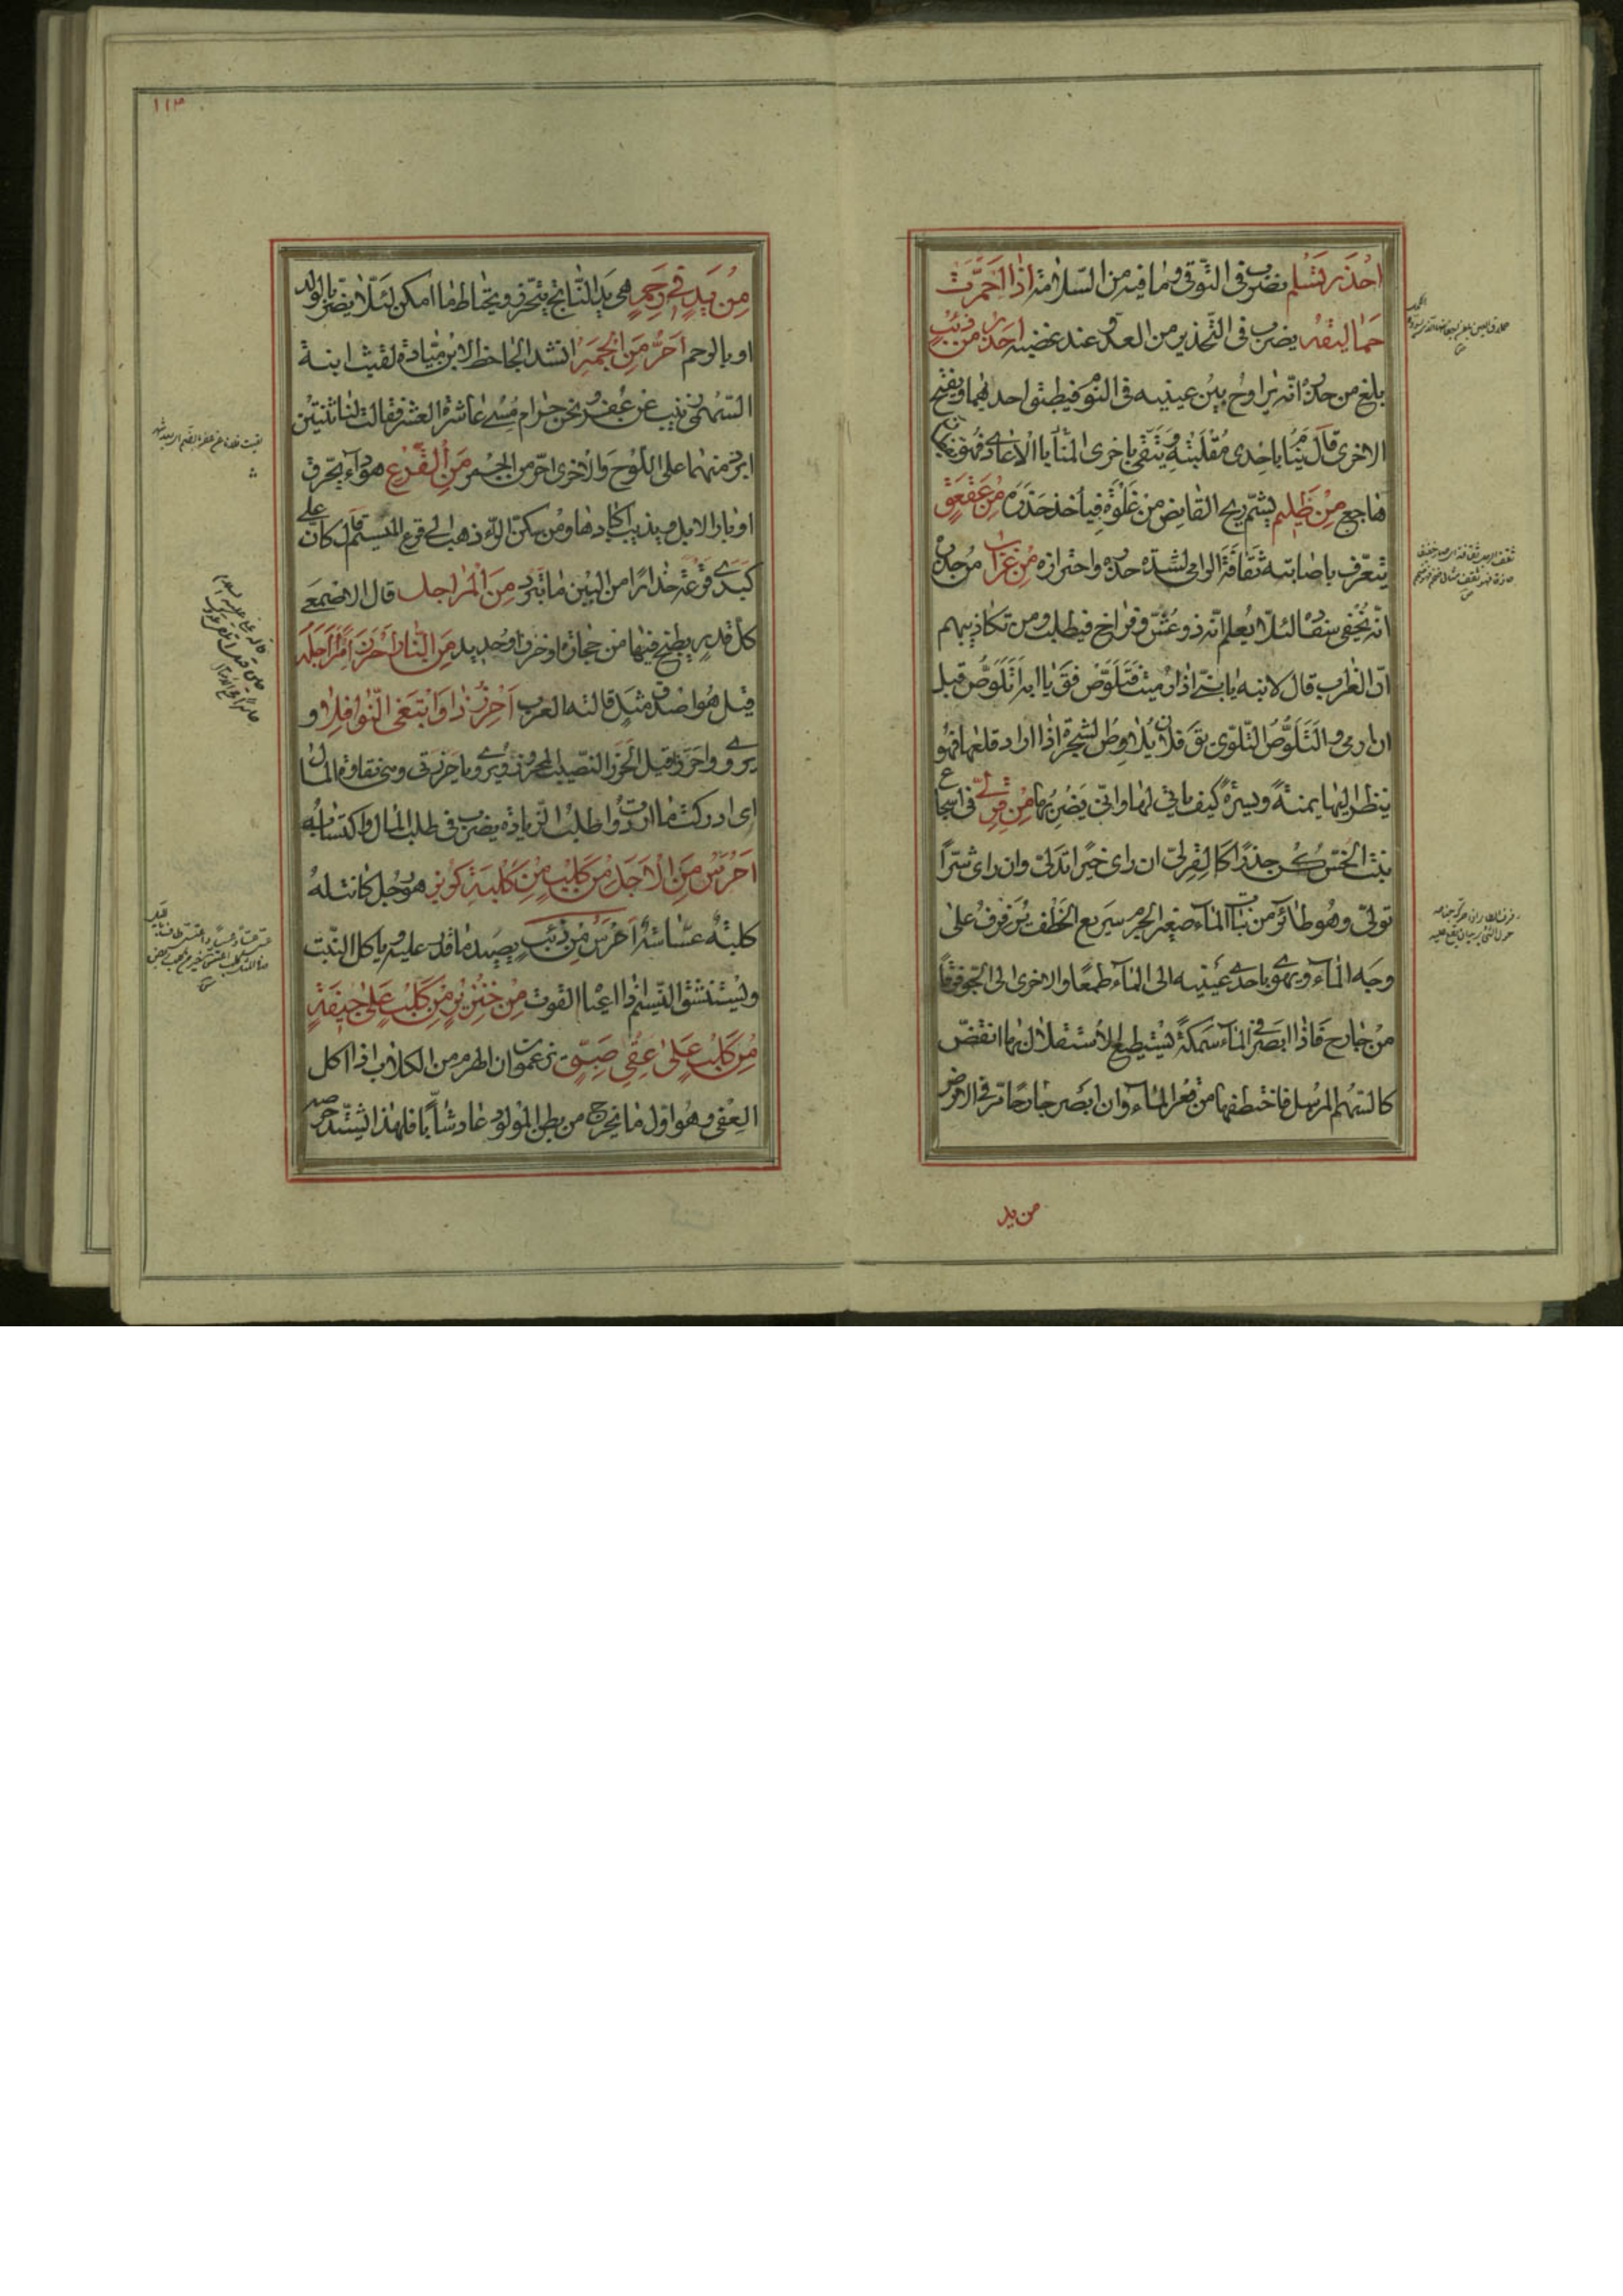 احذر تسلم يضرب فى التوقى وما فيه من السلامة اذا احمرّت
حماليقه يضرب فى التحذير من العدو عند غضبه احذر من ذئب
بلغ من حذره انه يراوح بين عينيه فى النوم فيطبق احدهما ويفتح
الاخرى قال ينام باحدى مقلتيه ويتقى باخرى المنايا الاعادى فهو يقظان
هاجع من ظليم يشم ريح القانص من غلوة فيأخذ حذره من عقعق
يتعرف باصابته ثقافة الرامى لشدة حذره واحترازه من غراب من حذره
انه يخفى سفاده لئلا يعلم انه ذو عش وفراخ فيطلب ومن تكاذيبهم
ان الغراب قال لابنه يا بنى اذا رميت فتلوّص فق يا ابه اتلوّص قبل
ان ارمى والتلوّص التلوّى يق فلان يلاوص الشجرة اذا اراد قلعها فهو
ينظر اليها يمنة ويسرة كيف ياتى لها وانى يضربها من قرلى فى اسجاع
بنت الخس كن حذرا كالقرلى ان راى خيرا تدلى وان راى شرا
تولى وهو طائر من بنات الماء صغير الجرم سريع الخطف يرفرف على
وجه الماء ويهوى باحدى عينيه الى الماء طمعا والاخرى الى الجو فرقا
من جارح فاذا ابصر فى الماء سمكة يستطيع الاستقلال بها انقض
كالسهم المرسل فاختطفها من قعر الماء وان ابصر جارحا مر فى الارض
من يد
١١٣
من يد فى رحم هى يد الناتج يتحرز ويحتاط ما امكن لئلا يضر بالولد
او بالرحم احرّ من الجمر انشد الجاحظ لابن ميادة لقيت ابنة
السهمى زينب عن عفر ونحن حرام مسى عاشرة العشر فقالت لنا ثنتين
ابرد منهما على اللوح والاخرى احر من الجمر من القرع هو داء يحرق
اوبار الابل ويذيب اكبادها ومن سكن الراء ذهب الى قرع الميسم قال كان على
كبدى قرعة حذارا من البين ما تبرد من المراجل قال الاصمعى
كل قدر يطبخ فيها من حجارة او خزف او حديد من النار احرز امرأ اجله
قيل هو اصدق مثل قالته العرب احرزت نوافلا وابتغى النوافلا و
يروى واحرزا قيل الحرز النصيب المحرز ويروى يا حرزتى وهى نقاوة المال
اى ادركت ما اردت واطلب الزيادة يضرب فى طلب المال واكتسابه
احرس من الاجل من كلب من كلبة كريز هو رجل كانت له
كلبة عساسة احرس من ذئب يصيد ما قدر عليه وياكل النبت
ويستنشق النسيم اذا اعياه القوت من خنزير من كلب على جيفة
من كلب على عقى صبى زعموا ان الهرم من الكلاب اذا اكل
العقى وهو اول ما يخرج من بطن المولود عاد شابا فلهذا يشتد حرصه